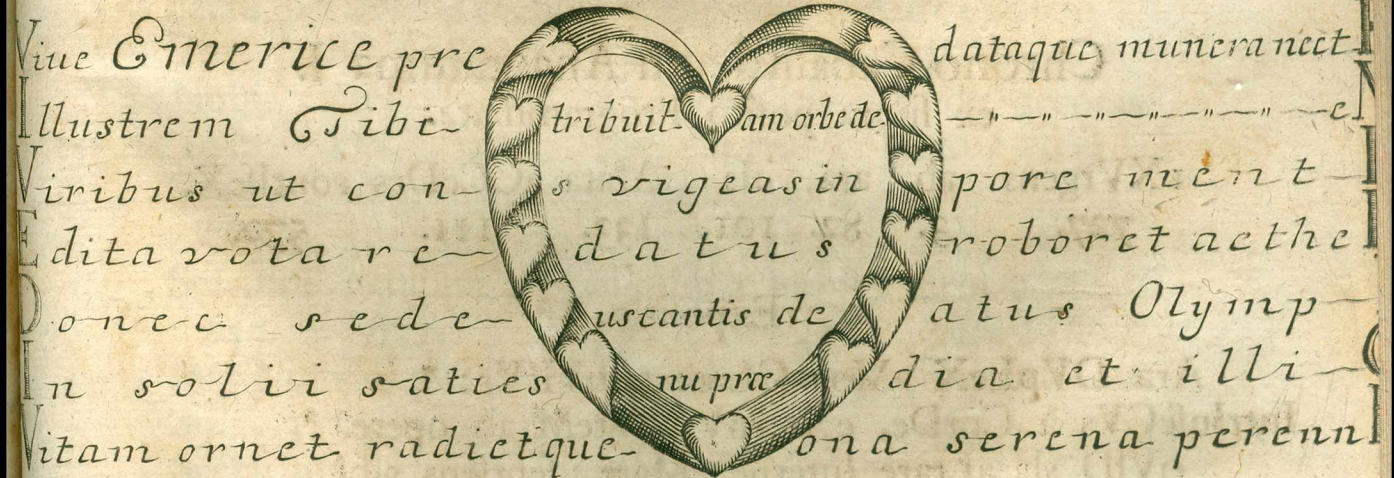 Viue Emerice pre dataque munera nect
Illustrem Tibi tribuit am orbe de e N
Viribus ut con- s vigeas in pore ment I
Edita vota re- datus roboret aethe I
Donec sede uscantis de atus Olymp
In solii saties nu præ dia et illi- C
Vitam ornet radietque ona serena perenn I